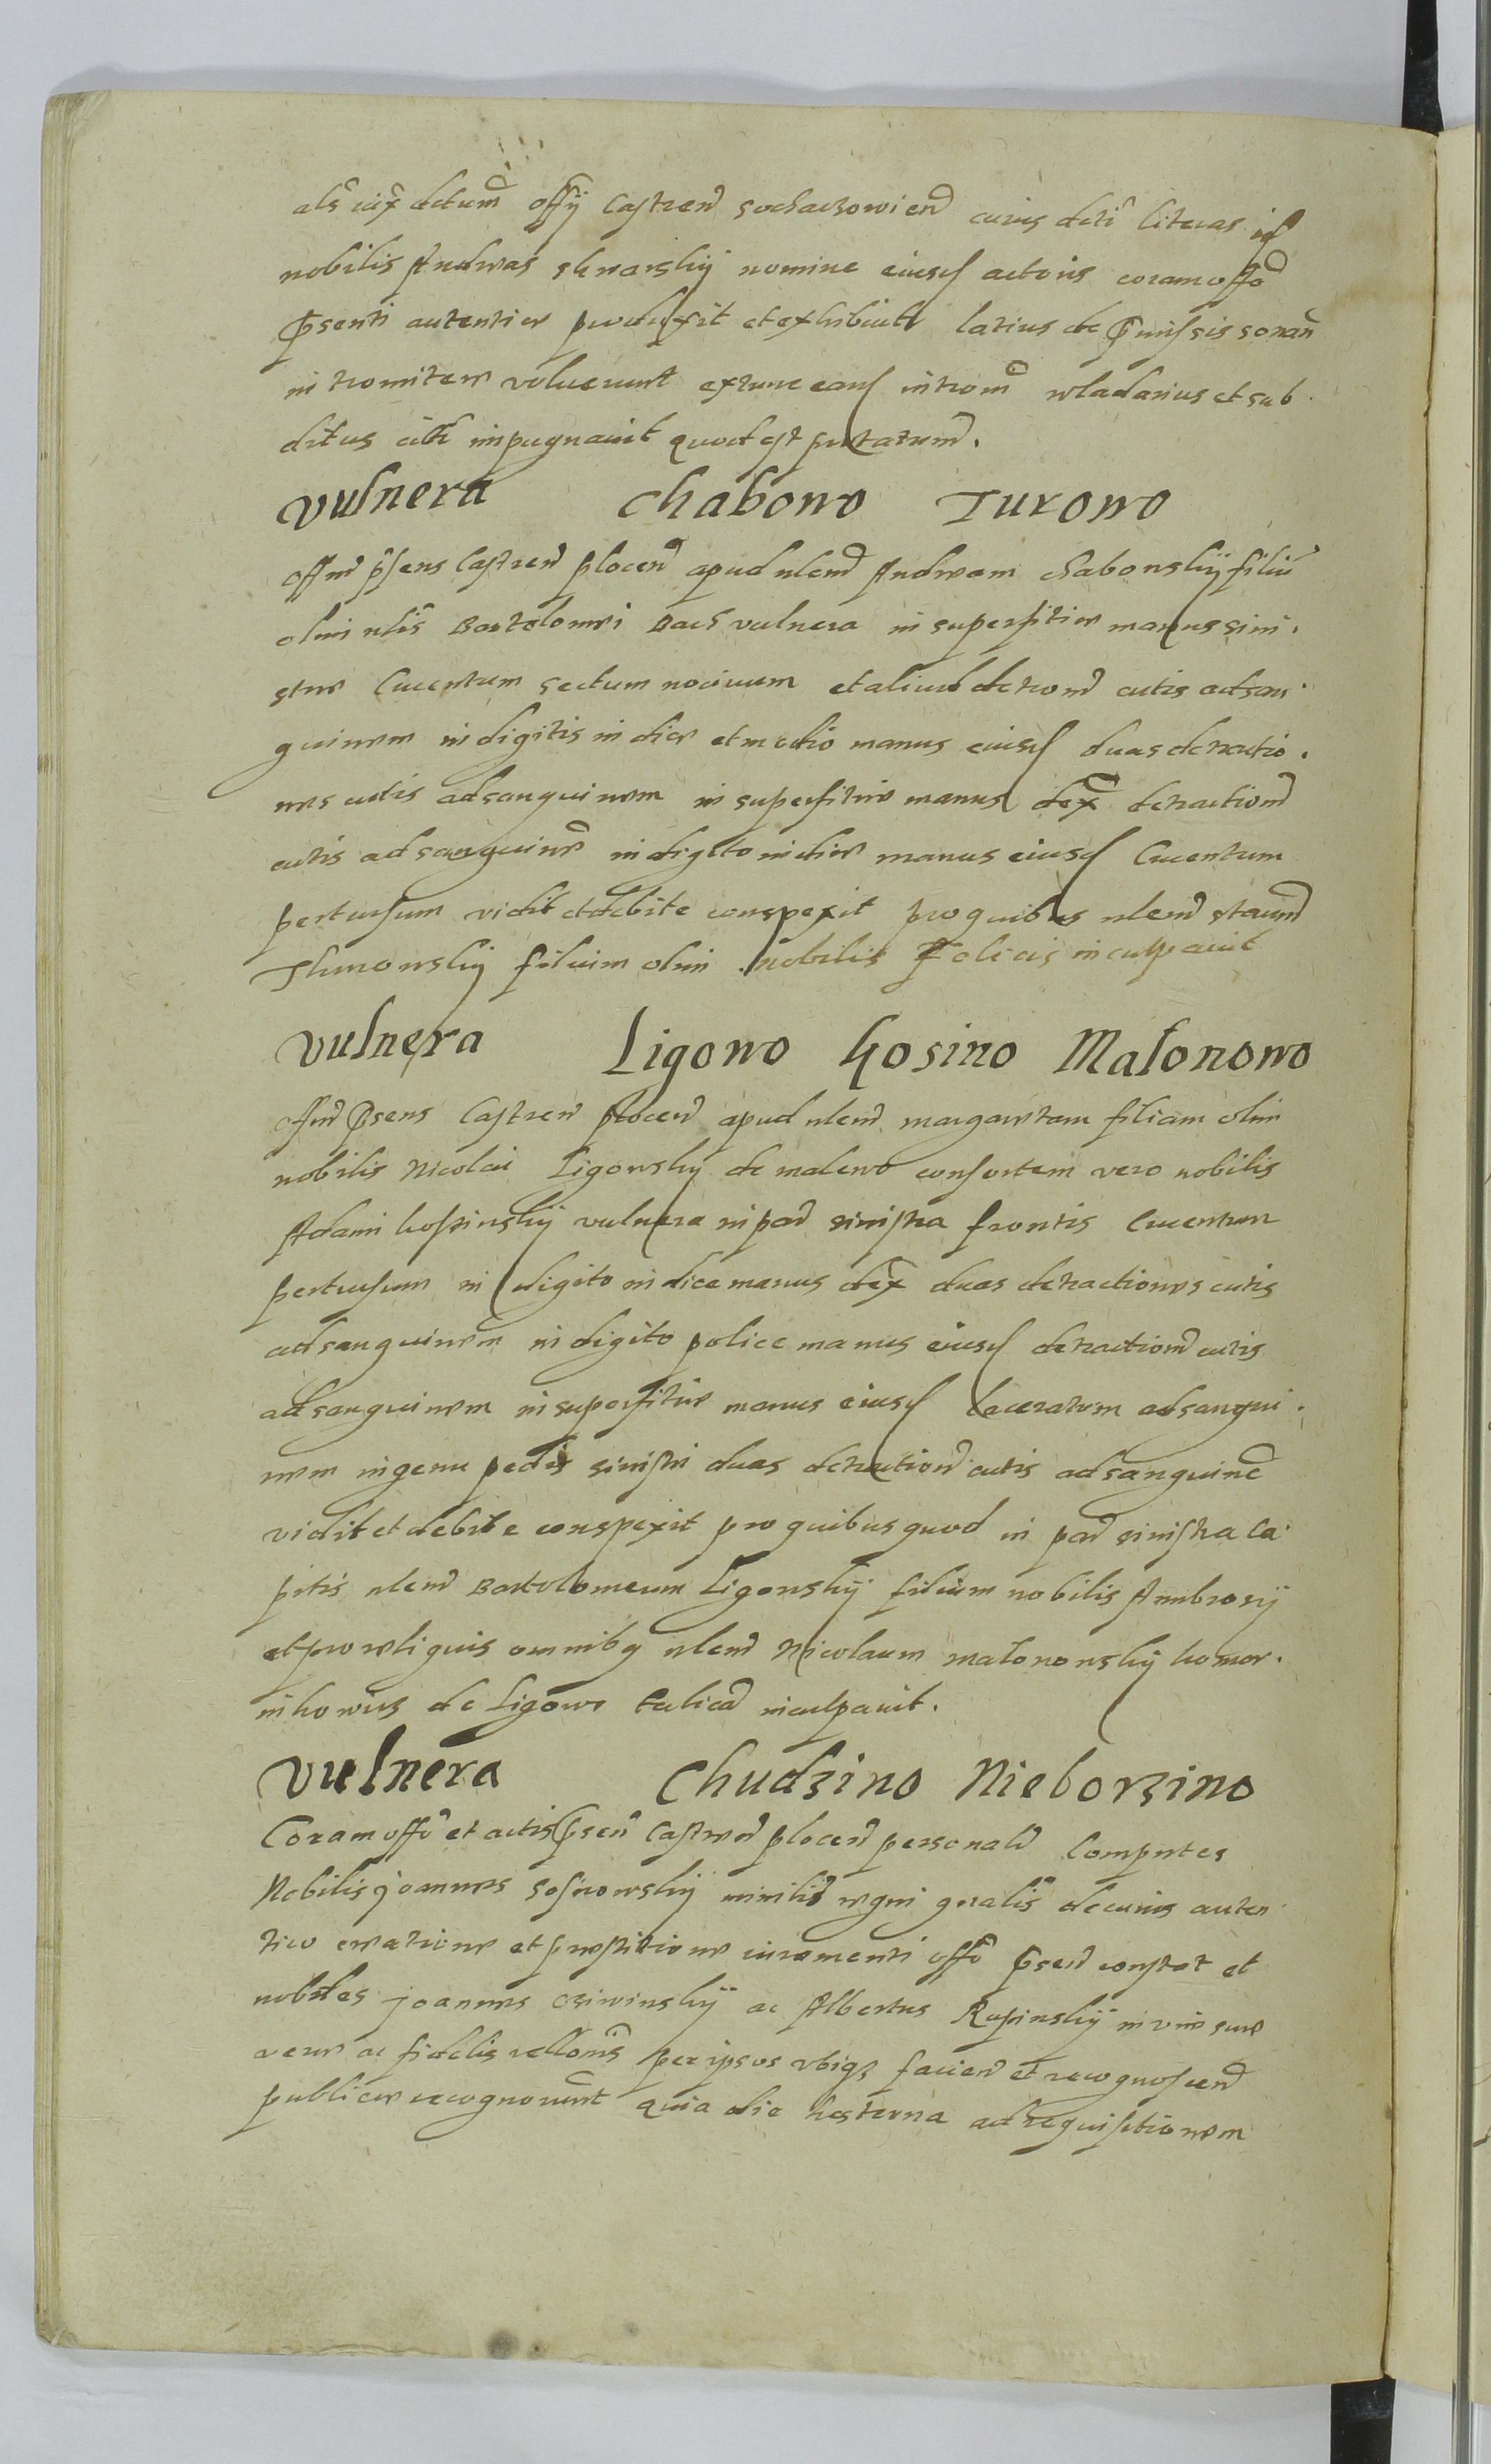 als iux dctum offy Castren sochaczowien cuius dcti literas id
nobilis Andreas nomine eiusd actoris coram offo
psenti autentice produxit et exhibuit latius de pmissis sonan
intromittere voluerunt extunc eand introm wladarius et sub
ditus ibi impugnavit quod est
Vulnera Chabowo Turowo
offm psens Castren plocen apud nlem Andream Chabowskij filiu
olim nlis Bartolomei Bacs vulnera in superfitie manus sini
stre Cruentum sectum nocivum et aliud detrom cutis ad san
guinem in digitis indice et medio manus eiusd duas detractio
nes cutis ad sanguinem in superfitie manus dex detractionem
cutis ad sanguine in digito indice manus eiusd Cruentum
pertusum vidit et debite conspexit pro quibus nlem
filium olim nobilis Felicis inculpavit
Vulnera Ligowo Kosino Malonowo
offm psens Castren plocen apud nlem margaretam filiam olim
nobilis Nicolai Ligowsky de malewo consortem vero nobilis
Adami kossinskij vulnera in par sinistra frontis Cruentum
pertusum in digito indice manus dex duas detractiones cutis
ad sanguinem in digito police manus eiusd detractionem cutis
ad sanguinem in superfitie manus eiusd laceratum ad sangui
nem in genu pedis sinistri duas detraction cutis ad sanguine
vidit et debite conspexit pro quibus quod in par sinistra Ca
pitis nlem Bartolomeum Ligowskij filium nobilis Ambrosij
et pro reliquis omnibq nlem Nicolaum malonowskij komor
nikowius de Ligowo inculpavit.
Vulnera Chudzino Nieborzino
Coram offo et actis psen Castren plocen personalr Comptes
Nobilis Joannes Sosnowskij minilis regni gnalis de cuius auten
tico creatione et prestitione iuramenti offo psen constat et
nobiles Joannes osiwinskij ac Albertus Rapinskij in vim sue
vere ac fidelis rellonis per ipsos ubiqz facien et recognoscen
publice recognoverunt quia die hesterna ad requisitionem